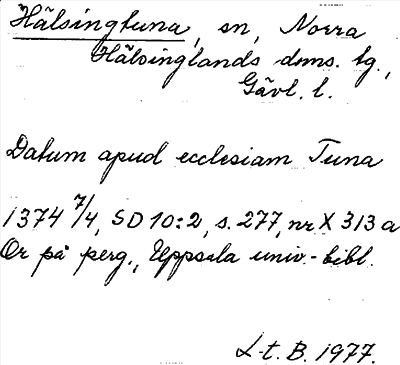 Hälsingtuna, sn, Norra
Hälsinglands doms. tg.,
Gävl. l.
Datum apud ecclesiam Tuna
1374 7/4, SD 10:2, s. 277, nr X 313 a
Or på perg., Uppsala univ.-bibl.
L-t. B. 1977.